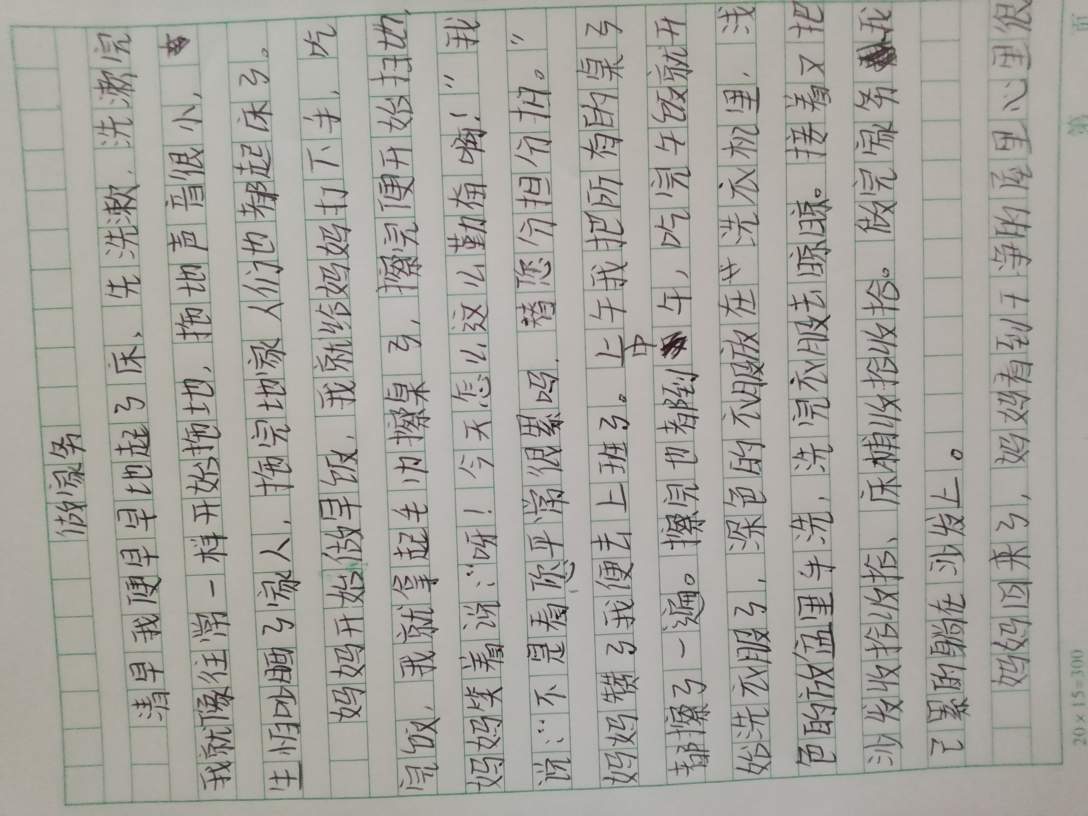 做家务
清早我便早早地起了床、先洗漱、洗漱完
我就像往常一样开始拖地，拖地声音很小，
生怕吵醒了家人，拖完地家人们也都起床了。
妈妈开始做早饭，我就给妈妈打下手，吃
完饭，我就拿起毛巾擦桌了，擦完便开始扫地，
妈妈笑着说："呀！今天怎么这么勤奋啊！"我
说："不是看您平常很累吗，替您分担分担。"
妈妈赞了我便去上班了。上午我把所有的桌了
都擦了一遍。擦完也都到中午，吃完午饭就开
始洗衣服了，深色的衣服放在洗衣机里，浅
色的放在盆里手洗，洗完衣服去晾晾。接着又把
沙发收拾收拾、床铺收拾收拾。做完家务我
了累的躺在沙发上。
妈妈回来了，妈妈看到干净的屋里心里很
20×15=300
第 页